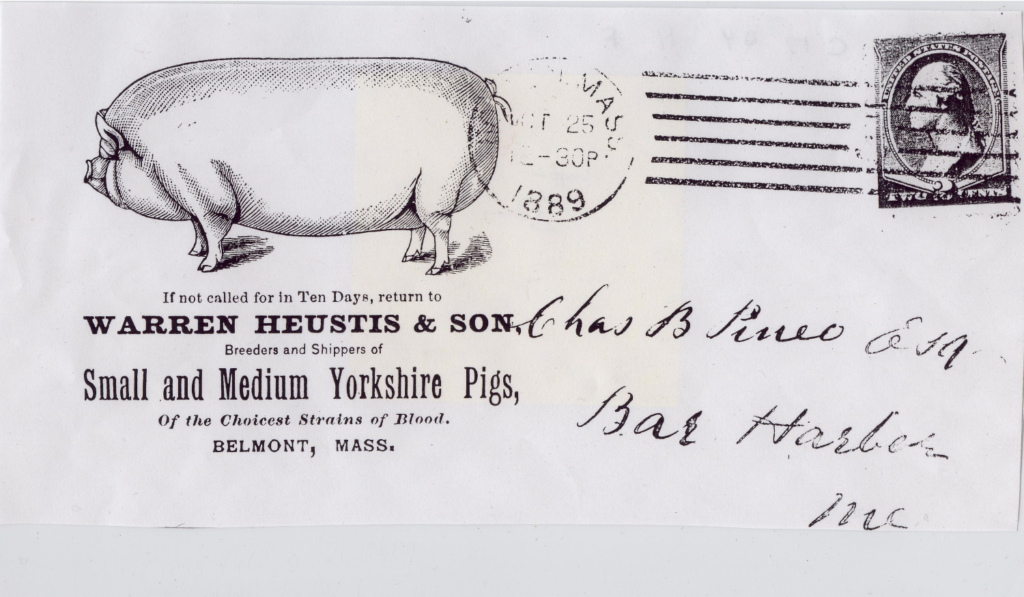 If not called for in Ten Days, return to
WARREN HEUSTIS & SON,
Breeders and Shippers of
Small and Medium Yorkshire Pigs,
Of the Choicest Strains of Blood.
BELMONT, MASS.
MASS.
OCT 25
12-30P
1889
UNITED STATES POSTAGE
2
TWO CENTS
Chas B Pineo Esq
Bar Harbor
Me